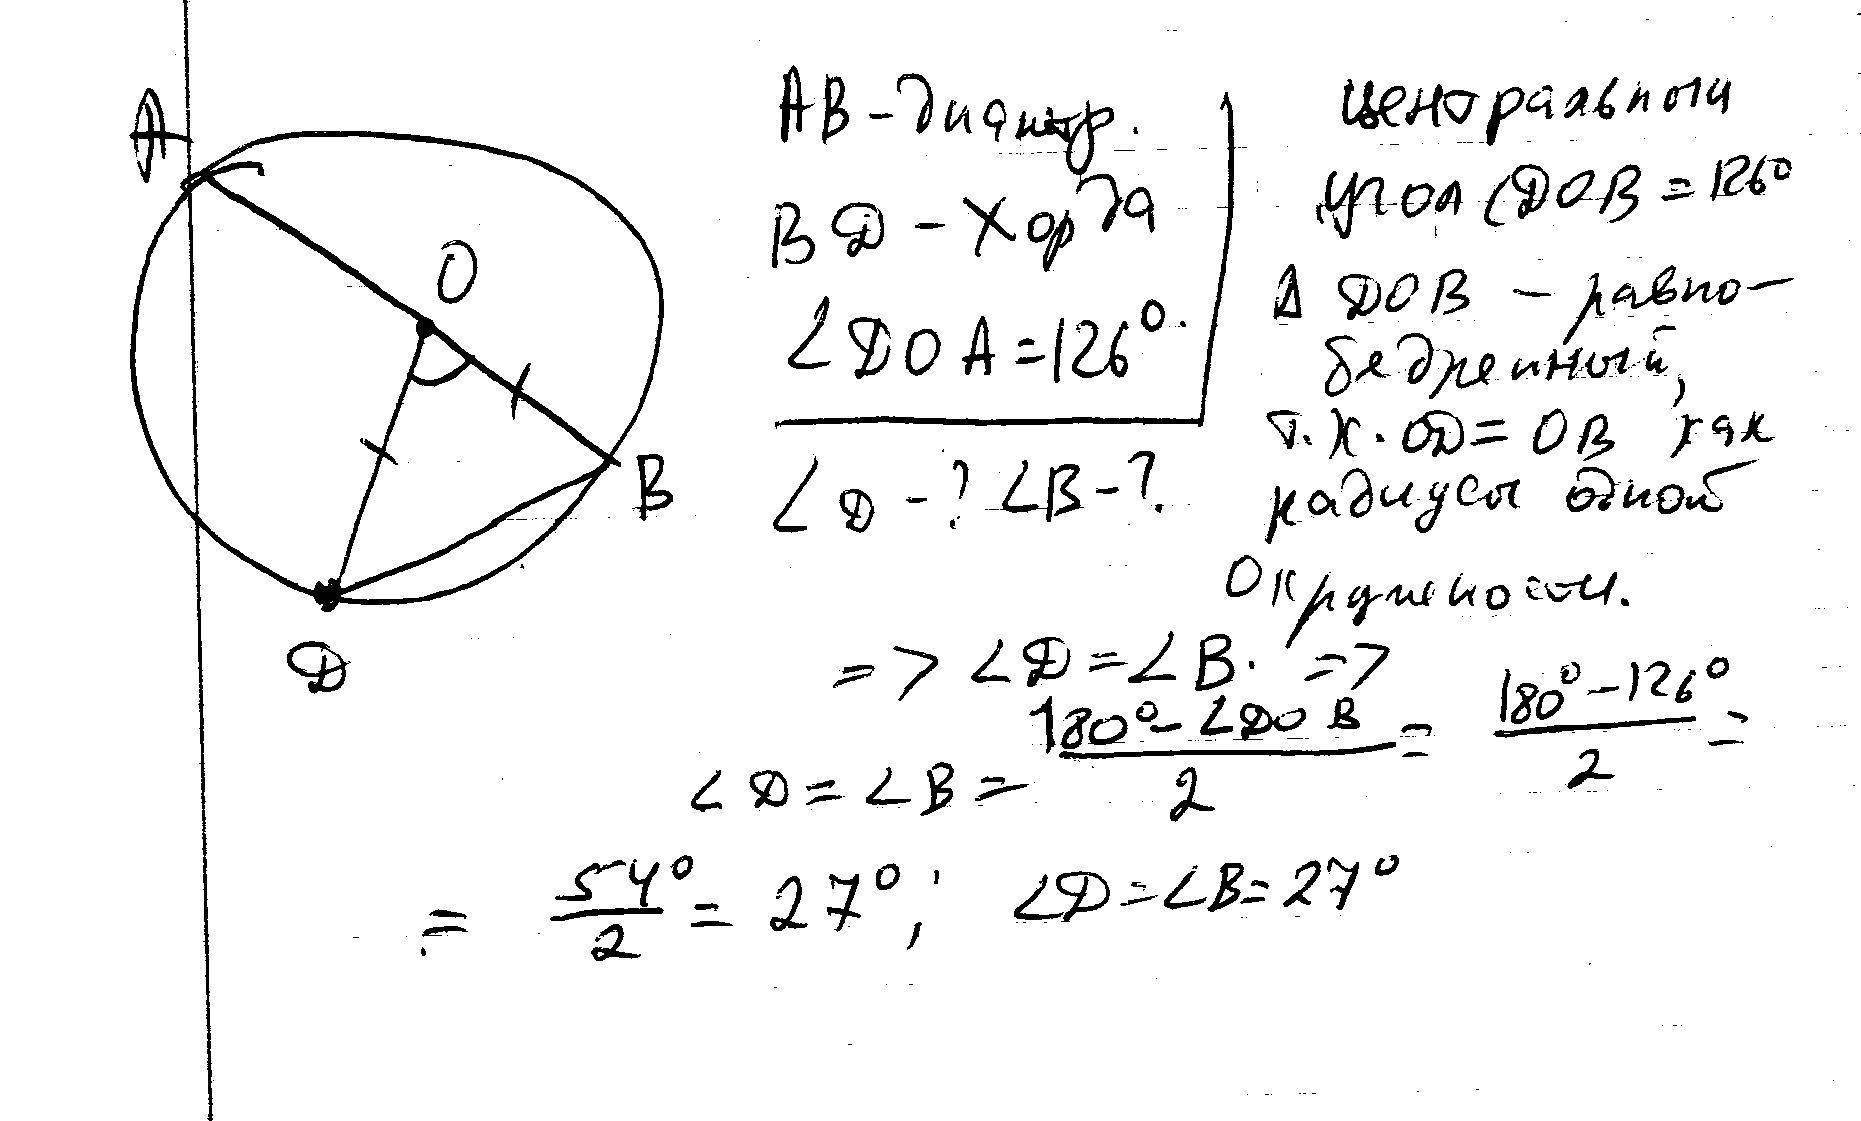 A
O
B
D
AB - диаметр.
BD - хорда
∠DOA = 126°.
∠D - ? ∠B - ?
центральный
угол (DOB = 126°
Δ DOB - равно-
бедренный,
т.к. OD = OB как
радиусы одной
окружности.
=> ∠D = ∠B. =>
∠D = ∠B = (180° - ∠DOB)/2 = (180° - 126°)/2 =
= 54°/2 = 27°; ∠D = ∠B = 27°